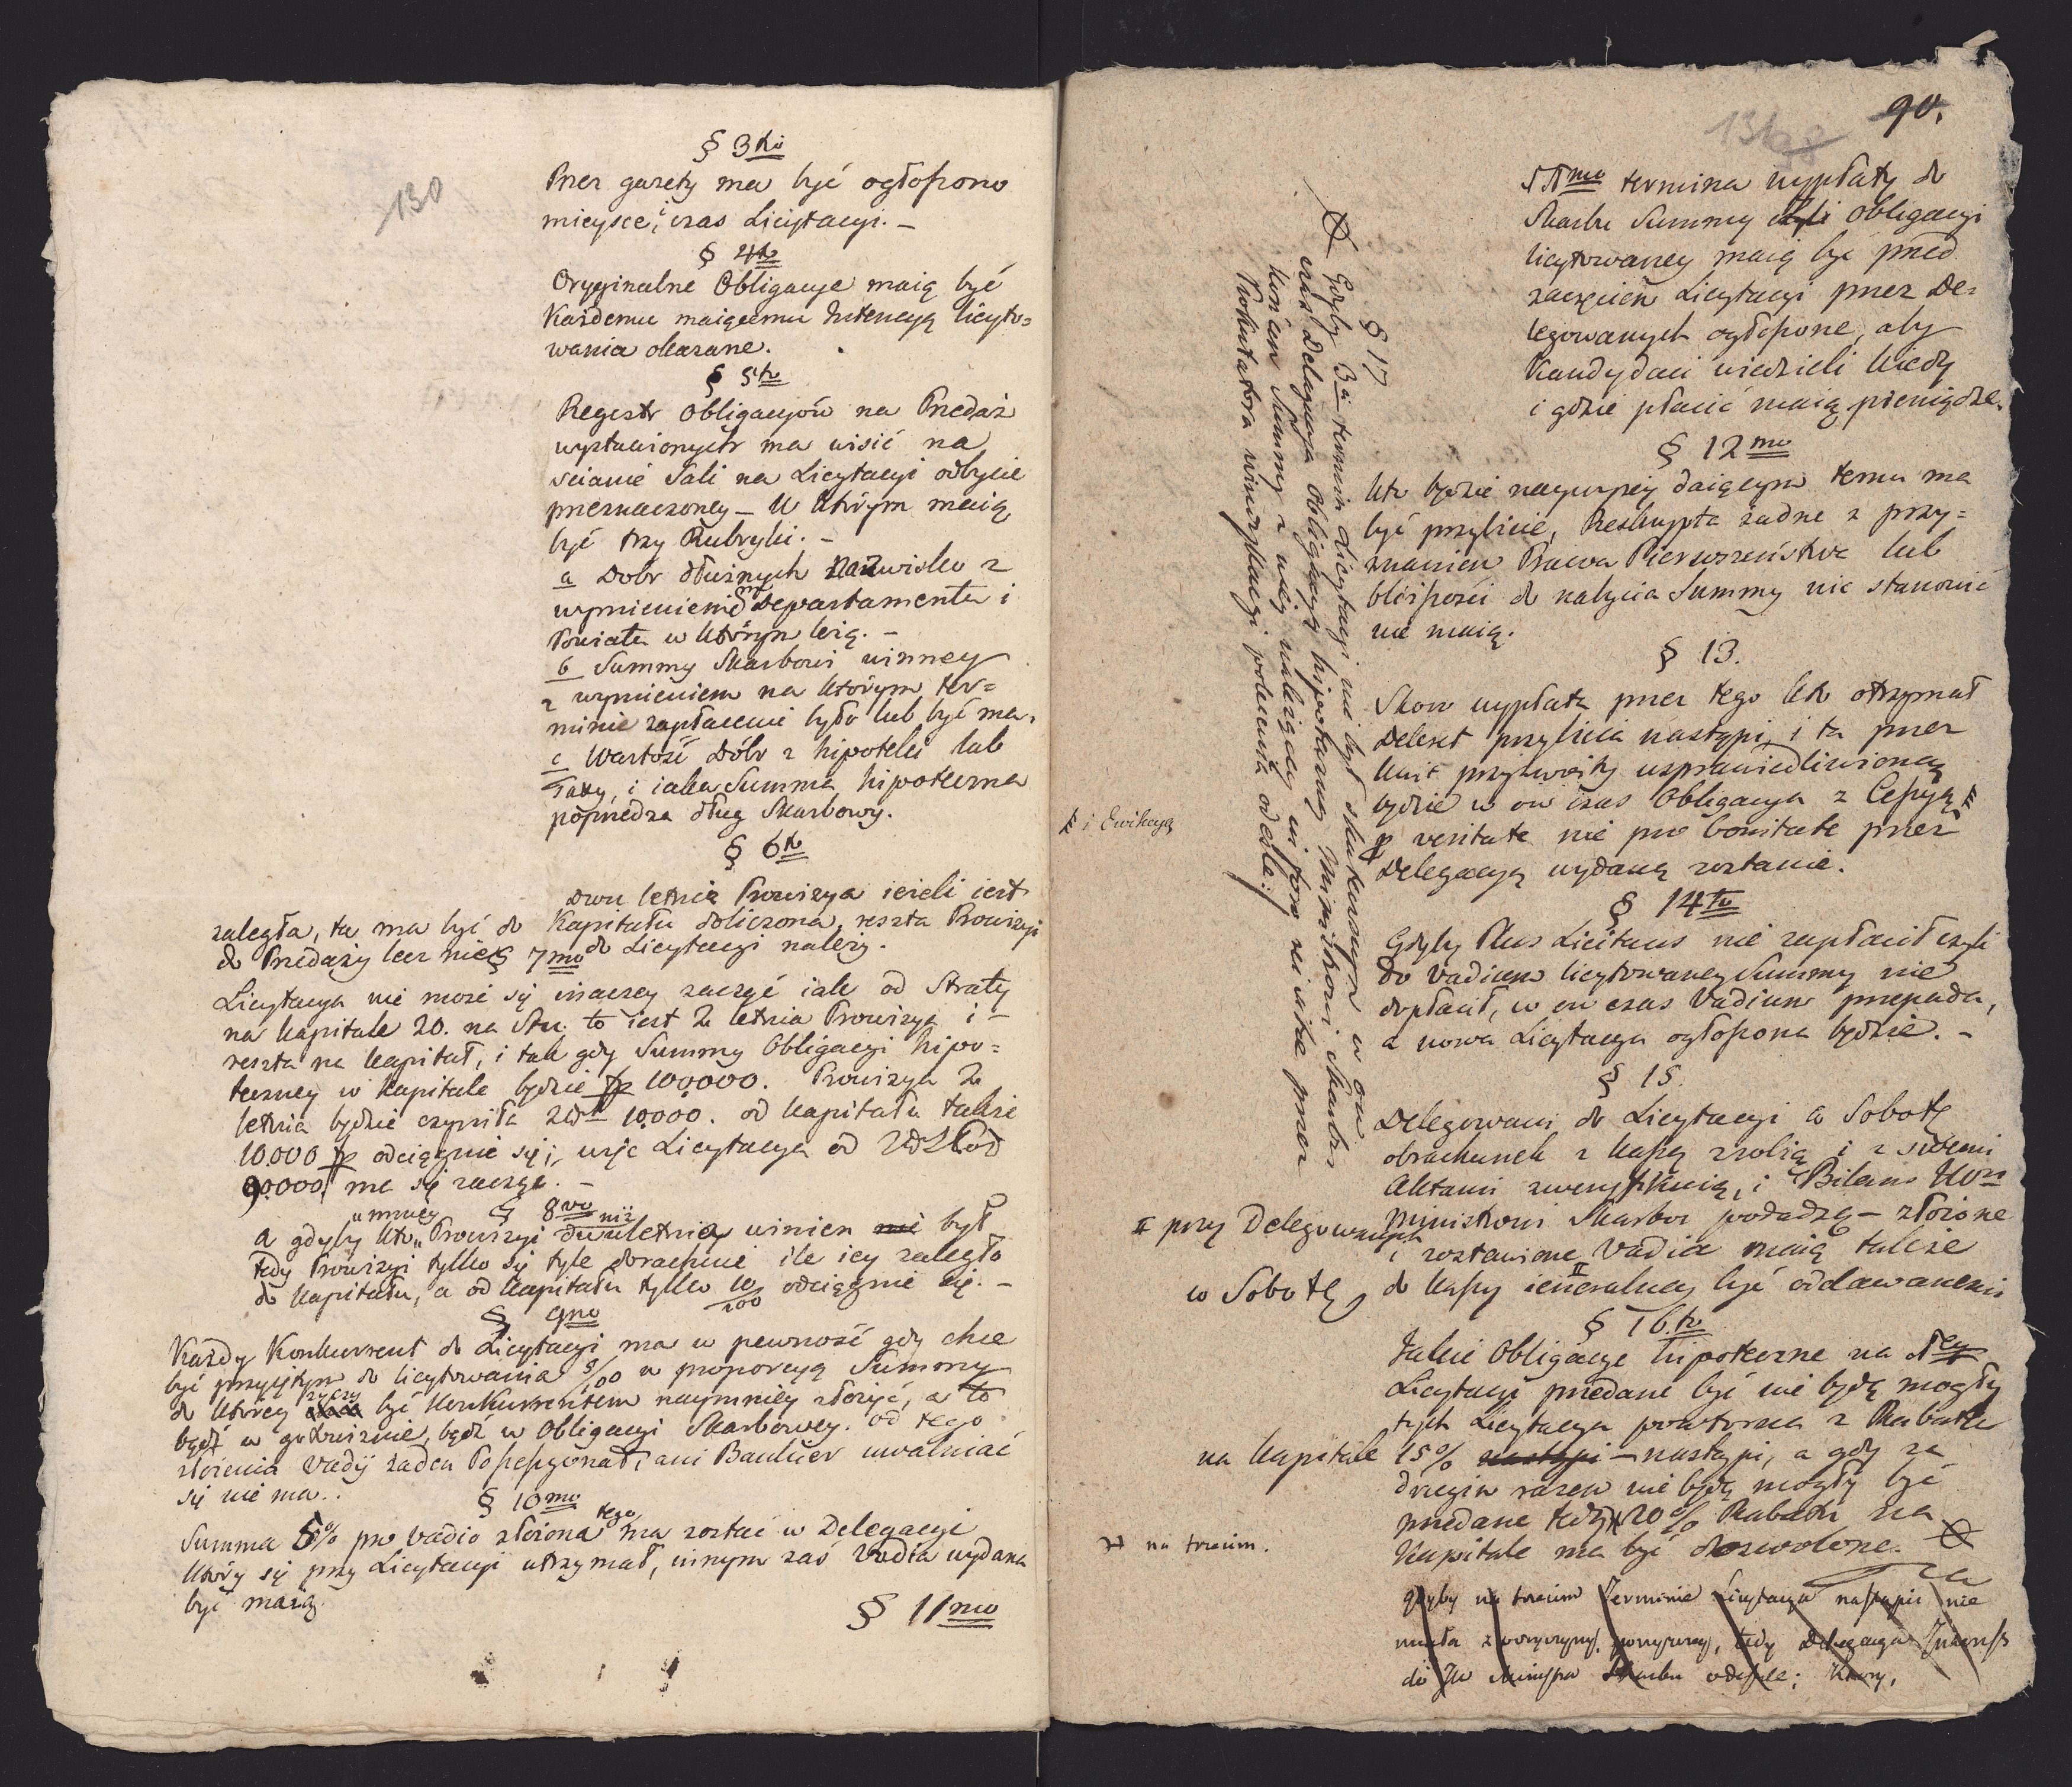 130
§ 3tio
Przez gazety ma być ogłoszono
mieysce, i czas Licytacyi. –
§ 4to
Oryginalne Obligacye maią być
Każdemu maiącemu Intencyą licyto=
wania okazane.
§ 5to
Regestr Obligacyów na Przedaż
wystawionych ma wisić na
scianie Sali na Licytacyi odbycie
przeznaczoney – w którym maią
być trzy Rubryki. –
a Dobr dłużnych nazwisko z
wymienieniem Departamentu i
Powiatu w którym leżą. –
b Summy Skarbowi winney
z wymieniem na którym ter=
minie zapłacenie było lub być ma,
c Wartość Dóbr z hipoteki lub
Taxy, i iaka Summa hipoteczna
poprzedza dług Skarbowy.
§ 6to
Dwu letnia Prowizya ieżeli iest
zaległa, ta ma być do Kapitału doliczona, reszta Prowizyi
do Przedaży lecz nie do Licytacyi należy.
§ 7mo
Licytacya nie może się inaczey zacząć iak od Straty
na kapitale 20. na Stu. to iest 2 letnia Prowizya i –
reszta na kapitał, i tak gdy Summy Obligacyi hipo=
teczney w kapitale będzie fp 100000. Prowizya 2
letnia będzie czyniła Zł 10,000. od kapitału także
10.000 fp odciągnie się i, więc Licytacya od
90000 ma się zacząć. –
§ 8vo
a gdyby kto mniey Prowizyi niż dwuletnią winien nie był
tedy Prowizyi tylko się tyle dorachuie ile iey zaległo
do kapitału, a od kapitału tylko 10/100 odciągnie się. –
§ 9no
Każdy Konkurrent do Licytacyi ma w pewność gdy chce
być przyiętym do licytowania 5/100 w proporcyą Summy
do którey życzy być Konkurrentem naymniey złożyć, a to
bądź w gotowiznie, bądź w Obligacyi Skarbowey. od tego
złożenia Vadij żaden Possessyonat, ani Bankier uwalniać
się nie ma..
§ 10mo
Summa 5% pro vadio złożona tego ma zostać w Delegacyi
który się przy Licytacyi utrzymał, innym zaś Vadia wydane
być maią.
§ 11mo
90.
11mo termina wypłaty do
Skarbu Summy czyli Obligacyi
licytowaney maią być przed
zaczęciem Licytacyi przez De=
legowanych ogłoszone, aby
Kandydaci wiedzieli kiedy
i gdzie płacić maią pieniądze.
§ 12mo
Kto będzie naywyżey daiącym temu ma
być przybicie, Reskrypta żadne z przy=
znaniem Prawa Pierwszeństwa lub
bliższości do nabycia Summy nic stanowić
nie maią.
§ 13.
Skoro wypłata przez tego kto otrzymał
Dekret przybicia nastąpi, i ta przez
kwit przyzwoity usprawiedliwioną
będzie w ow czas Obligacya z Cessyą
i Ewikcyą
p veritate nie pro bonitate przez
Delegacyą wydaną zostanie.
§ 14to
Gdyby Plus Licitans nie zapłacił czyli
do Vadium licytowaney Summy nie
dopłacił, w ow czas Vadium przepada,
a nowa Licytacya ogłoszona będzie. –
§ 15.
Delegowani do Licytacyi co Sobotę
obrachunek z kassą zrobią i z swemi
Aktami zweryfikuią, i Bilans
Ministrowi Skarbu podadzą – złożone
II przy Delegowanych
i zostawione II Vadia maią także
co Sobotę, do kassy ieneralney być oddawanemi
§ 16to
Jakie Obligacye hipoteczne na 1ey
Licytacyi przedane być nie będą mogły
tych Licytacya powtórna z Rabatem
na kapitale 15% nastąpi – nastąpi, a gdy za
drugim razem nie będą mogły być
przedane tedy # 20% Rabatu na
# na trzecim.
Kapitale ma być dozwolone.
gdyby na trzecim Terminie Licytacya nastąpić nie
miała z przyczyny powyższey, tedy Delegacya Interess
do JW Ministra Skarbu odeszle; Który,
§ 17
Gdyby 3ci termin Licytacyi nie był skutecznym w ow
czas Delegacya Obligacyą hipoteczną Ministrowi Skarbu
końcem Summy z niey należącey in foro fisci przez
Prokuratora windykacyi polecenia odeśle:/